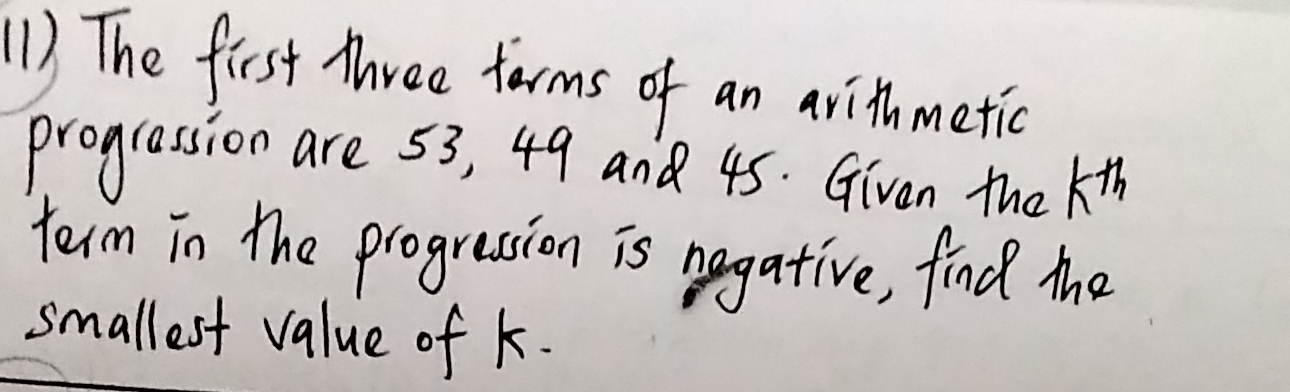 11) The first three terms of an arithmetic
progression are 53, 49 and 45. Given the kth
term in the progression is negative, find the
smallest value of k.